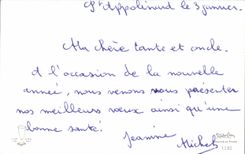 St Appolinard le 3 janvier.
Ma chère tante et oncle.
A l'occasion de la nouvelle
année, nous venons vous présenter
nos meilleurs vœux ainsi qu'une
bonne santé.
Jeanine Michel